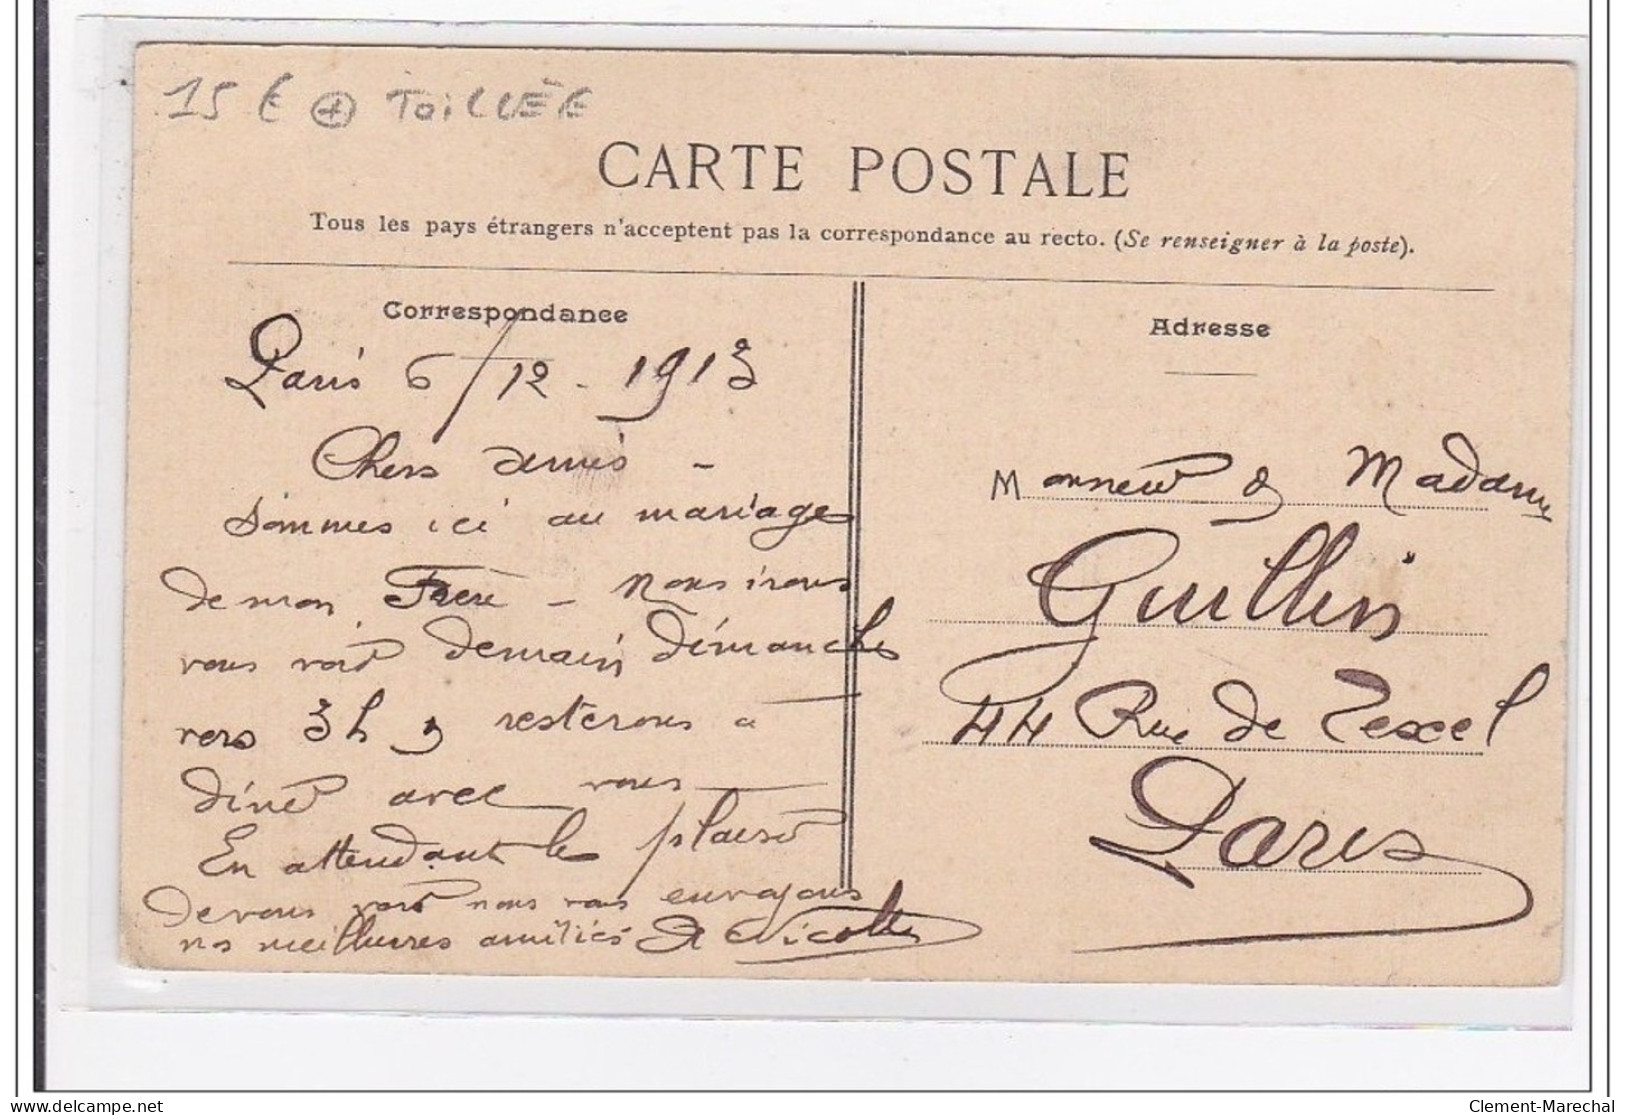 15 € + TOILLÉE
CARTE POSTALE
Tous les pays étrangers n'acceptent pas la correspondance au recto. (Se renseigner à la poste).
Correspondance
Paris 6/12 - 1913
Chers amis -
Sommes ici au mariage
de mon Frère - Nous irons
vous voir demain dimanche
vers 3h & resterons à
diner avec vous
En attendant le plaisir
de vous voir nous vous envoyons
nos meilleures amitiés Nicolle
Adresse
Monsieur & Madame
Guillin
44 Rue de Texel
Paris
Clement-Marechal